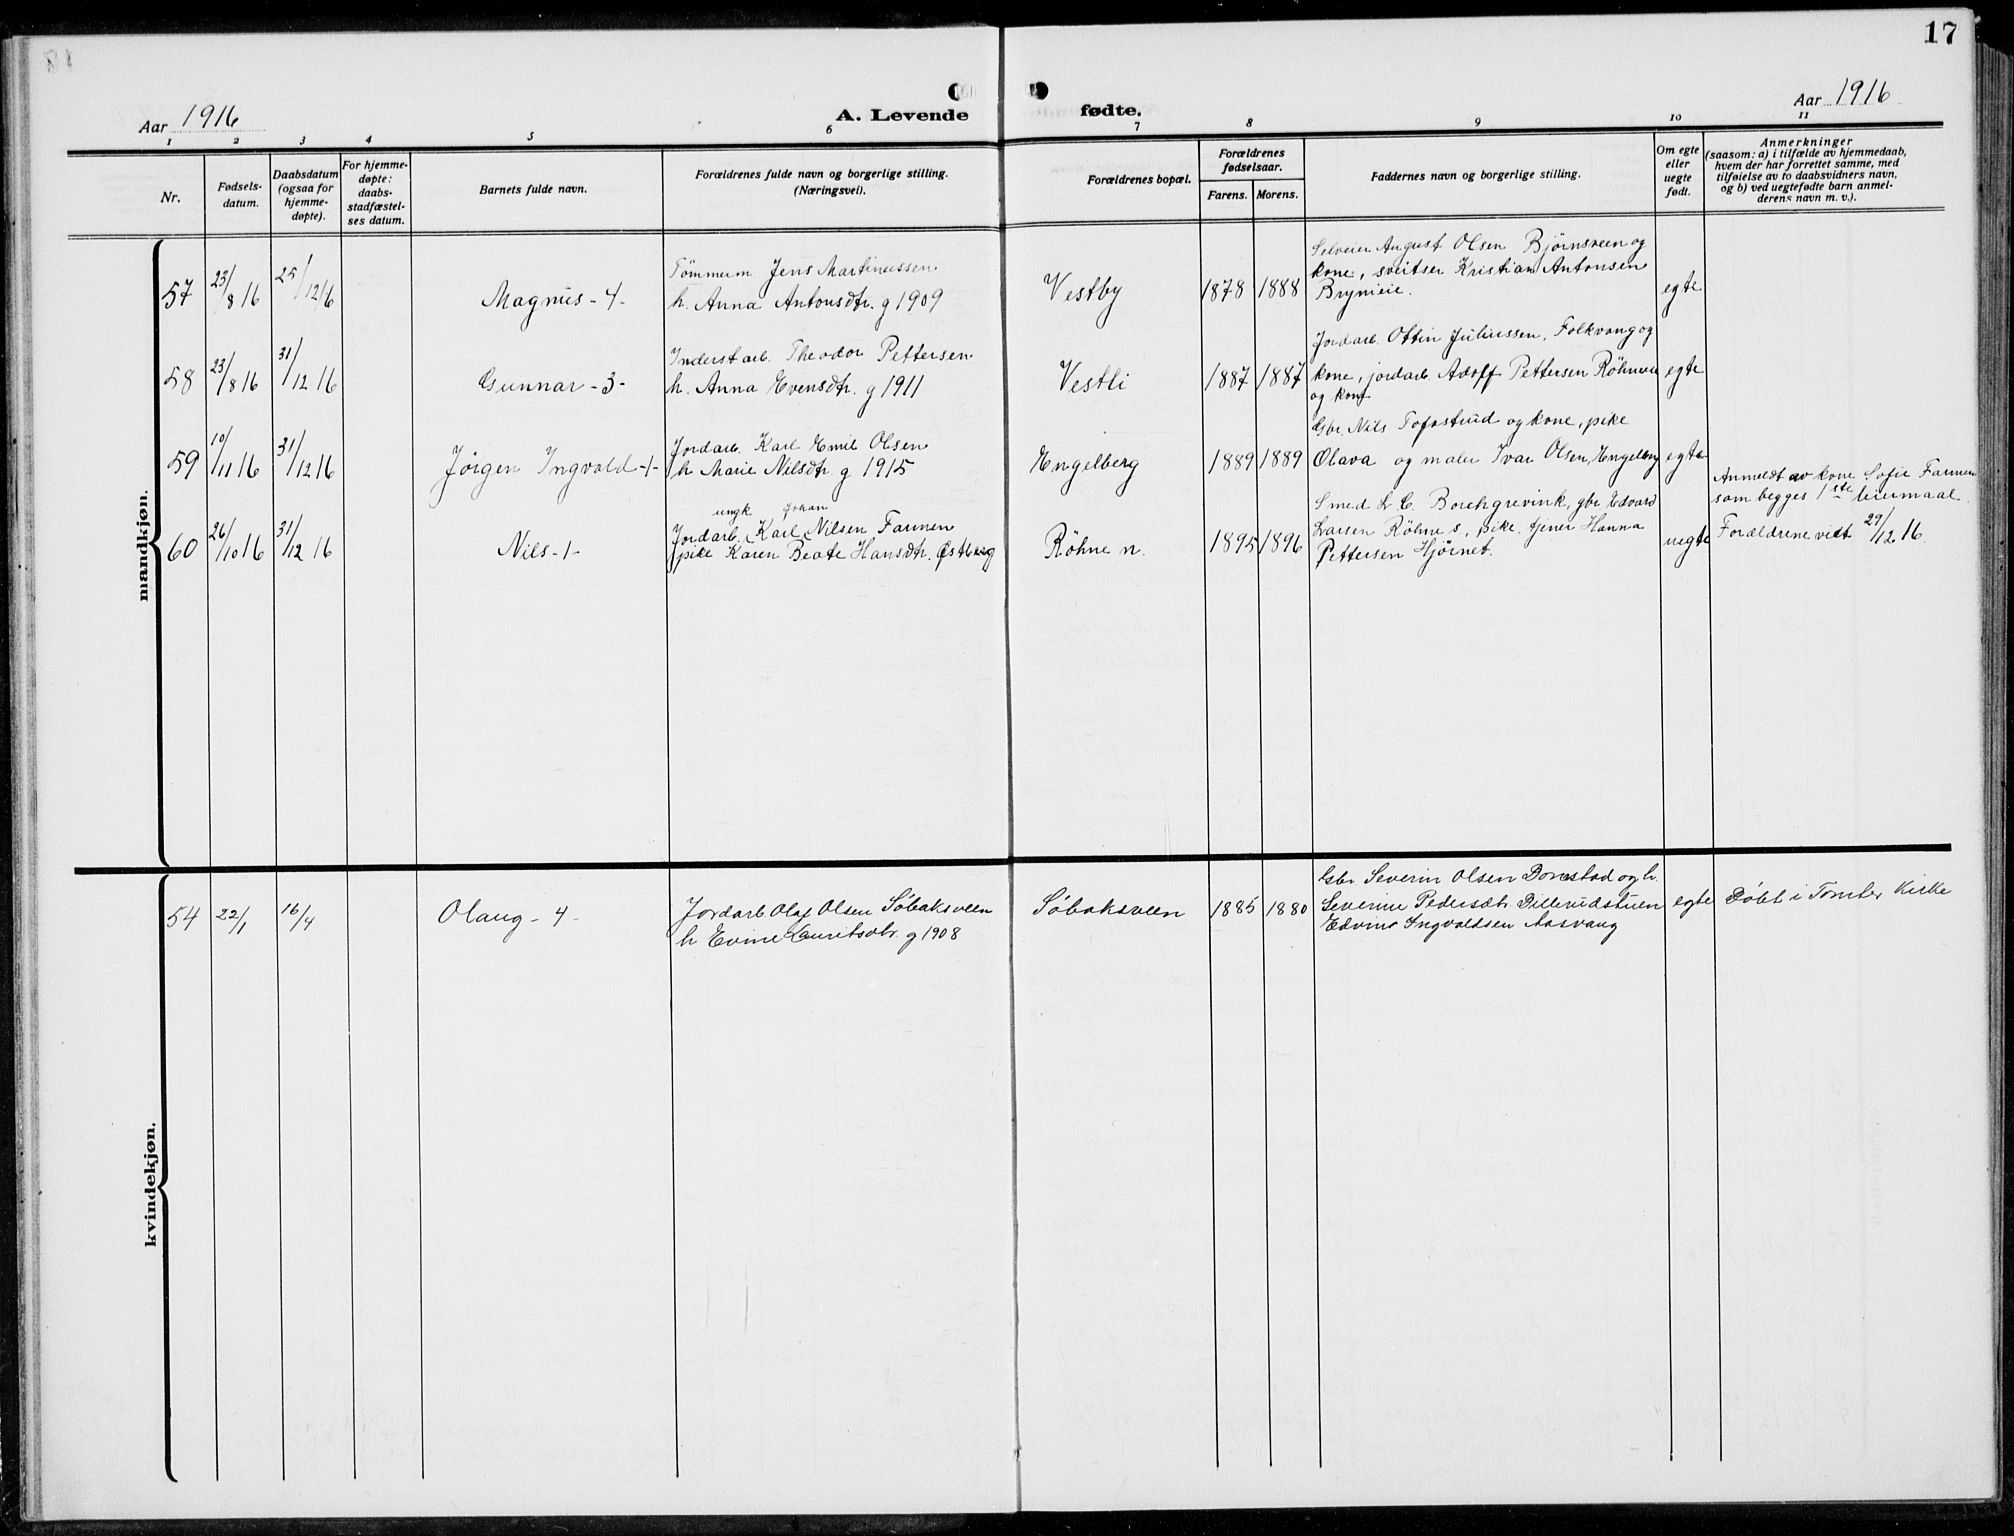 17
Aar 1916
A. Levende fødte.
Aar 1916
1 2 3 4 5 6 7 8 9 10 11
Nr.
Fødsels-
datum.
Daabsdatum
(ogsaa for
hjemme-
døpte).
For hjemme-
døpte:
daabs-
stadfæstel-
ses datum.
Barnets fulde navn.
Forældrenes fulde navn og borgerlige stilling.
(Næringsvei).
Forældrenes bopæl.
Forældrenes
fødselsaar.
Farens. Morens.
Faddernes navn og borgerlige stilling.
Om egte
eller
uegte
født.
Anmerkninger
(saasom: a) i tilfælde av hjemmedaab,
hvem der har forrettet samme, med
tilføielse av to daabsvidners navn,
og b) ved uegtefødte barn anmel-
derens navn m. v.).
mandkjøn.
57 23/8 16 25/12 16 Magnus - 4 -
Tømmerm Jens Martinussen
h. Anna Antonsdtr. g 1909
Vestby 1878 1888
Selveier August Olsen Bjørnsveen og
kone, sveitser Kristian Antonsen
Brynieie.
egte
58 23/8 16 31/12 16 Gunnar - 3 -
Inderst arb. Theodor Pettersen
h. Anna Evensdtr. g 1911
Vestli 1887 1887
Jordarb. Ottin Juliussen, Folkvang og
kone, jordarb. Adolf Pettersen Röhneeie
og kone
egte
59 10/11 16 31/12 16 Jörgen Ingvald - 1 -
Jordarb. Karl Emil Olsen
h Marie Nilsdtr. g 1915
Engelberg 1889 1889
Gbr. Nils Tofastrud og kone, pike
Olava og maler Ivar Olsen, Engelberg
egte
60 26/10 16 31/12 16 Nils - 1 -
ungk Johan
Jordarb. Karl Nilsen Farmen
pike Karen Beate Hansdtr. Østberg
Röhne n. 1895 1896
Smed L. C. Borchgrevink, gbr Edvard
Larsen Röhne s, pike, tjener Hanna
Pettersen Hjörnet.
uegte
Anmeldt av kone Sofie Farmen
som begges 1ste leiermaal.
Forældrene viet 29/12 16.
kvindekjøn.
54 22/1 16/4 Olaug - 4 -
Jordarb. Olaf Olsen Søbaksveen
h Evine Lauritsdtr. g 1908
Søbaksveen 1885 1880
Gbr Severin Olsen Dorestad og h.
Severine Pedersdtr Dillerudstuen
Edvin Ingvaldsen Aasvang
egte
Döbt i Tomter Kirke